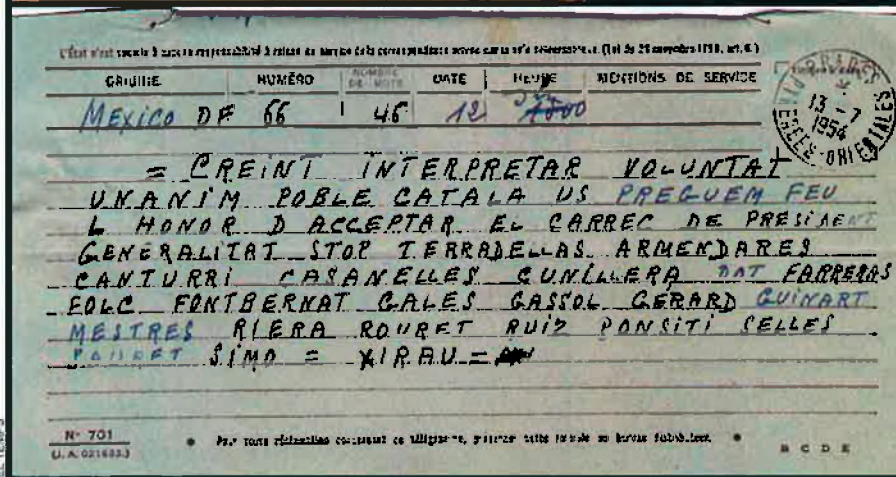 L'État n'est soumis à aucune responsabilité à raison du service de la correspondance privée sur la voie télégraphique. (Loi du 29 novembre 1850, art. 6.)
ORIGINE NUMÉRO NOMBRE DE MOTS DATE HEURE MENTIONS DE SERVICE
MEXICO DF 66 46 12
13 - 7
1954
= CREINT INTERPRETAR VOLUNTAT
UNANIM POBLE CATALA US PREGUEM FEU
L HONOR D ACCEPTAR EL CARREC DE PRESIDENT
GENERALITAT STOP TERRADELLAS ARMENDARES
CANTURRI CASANELLES CUNILLERA DOT FARRERAS
FOLC FONTBERNAT GALES GASSOL GERARD GUINART
MESTRES RIERA ROURET RUIZ PONSITI SELLES
SIMO = XIRAU =
N° 701
(J. A. 021683.)
• Pour toute réclamation concernant ce télégramme, présenter cette formule au bureau distributeur. •
B C D E